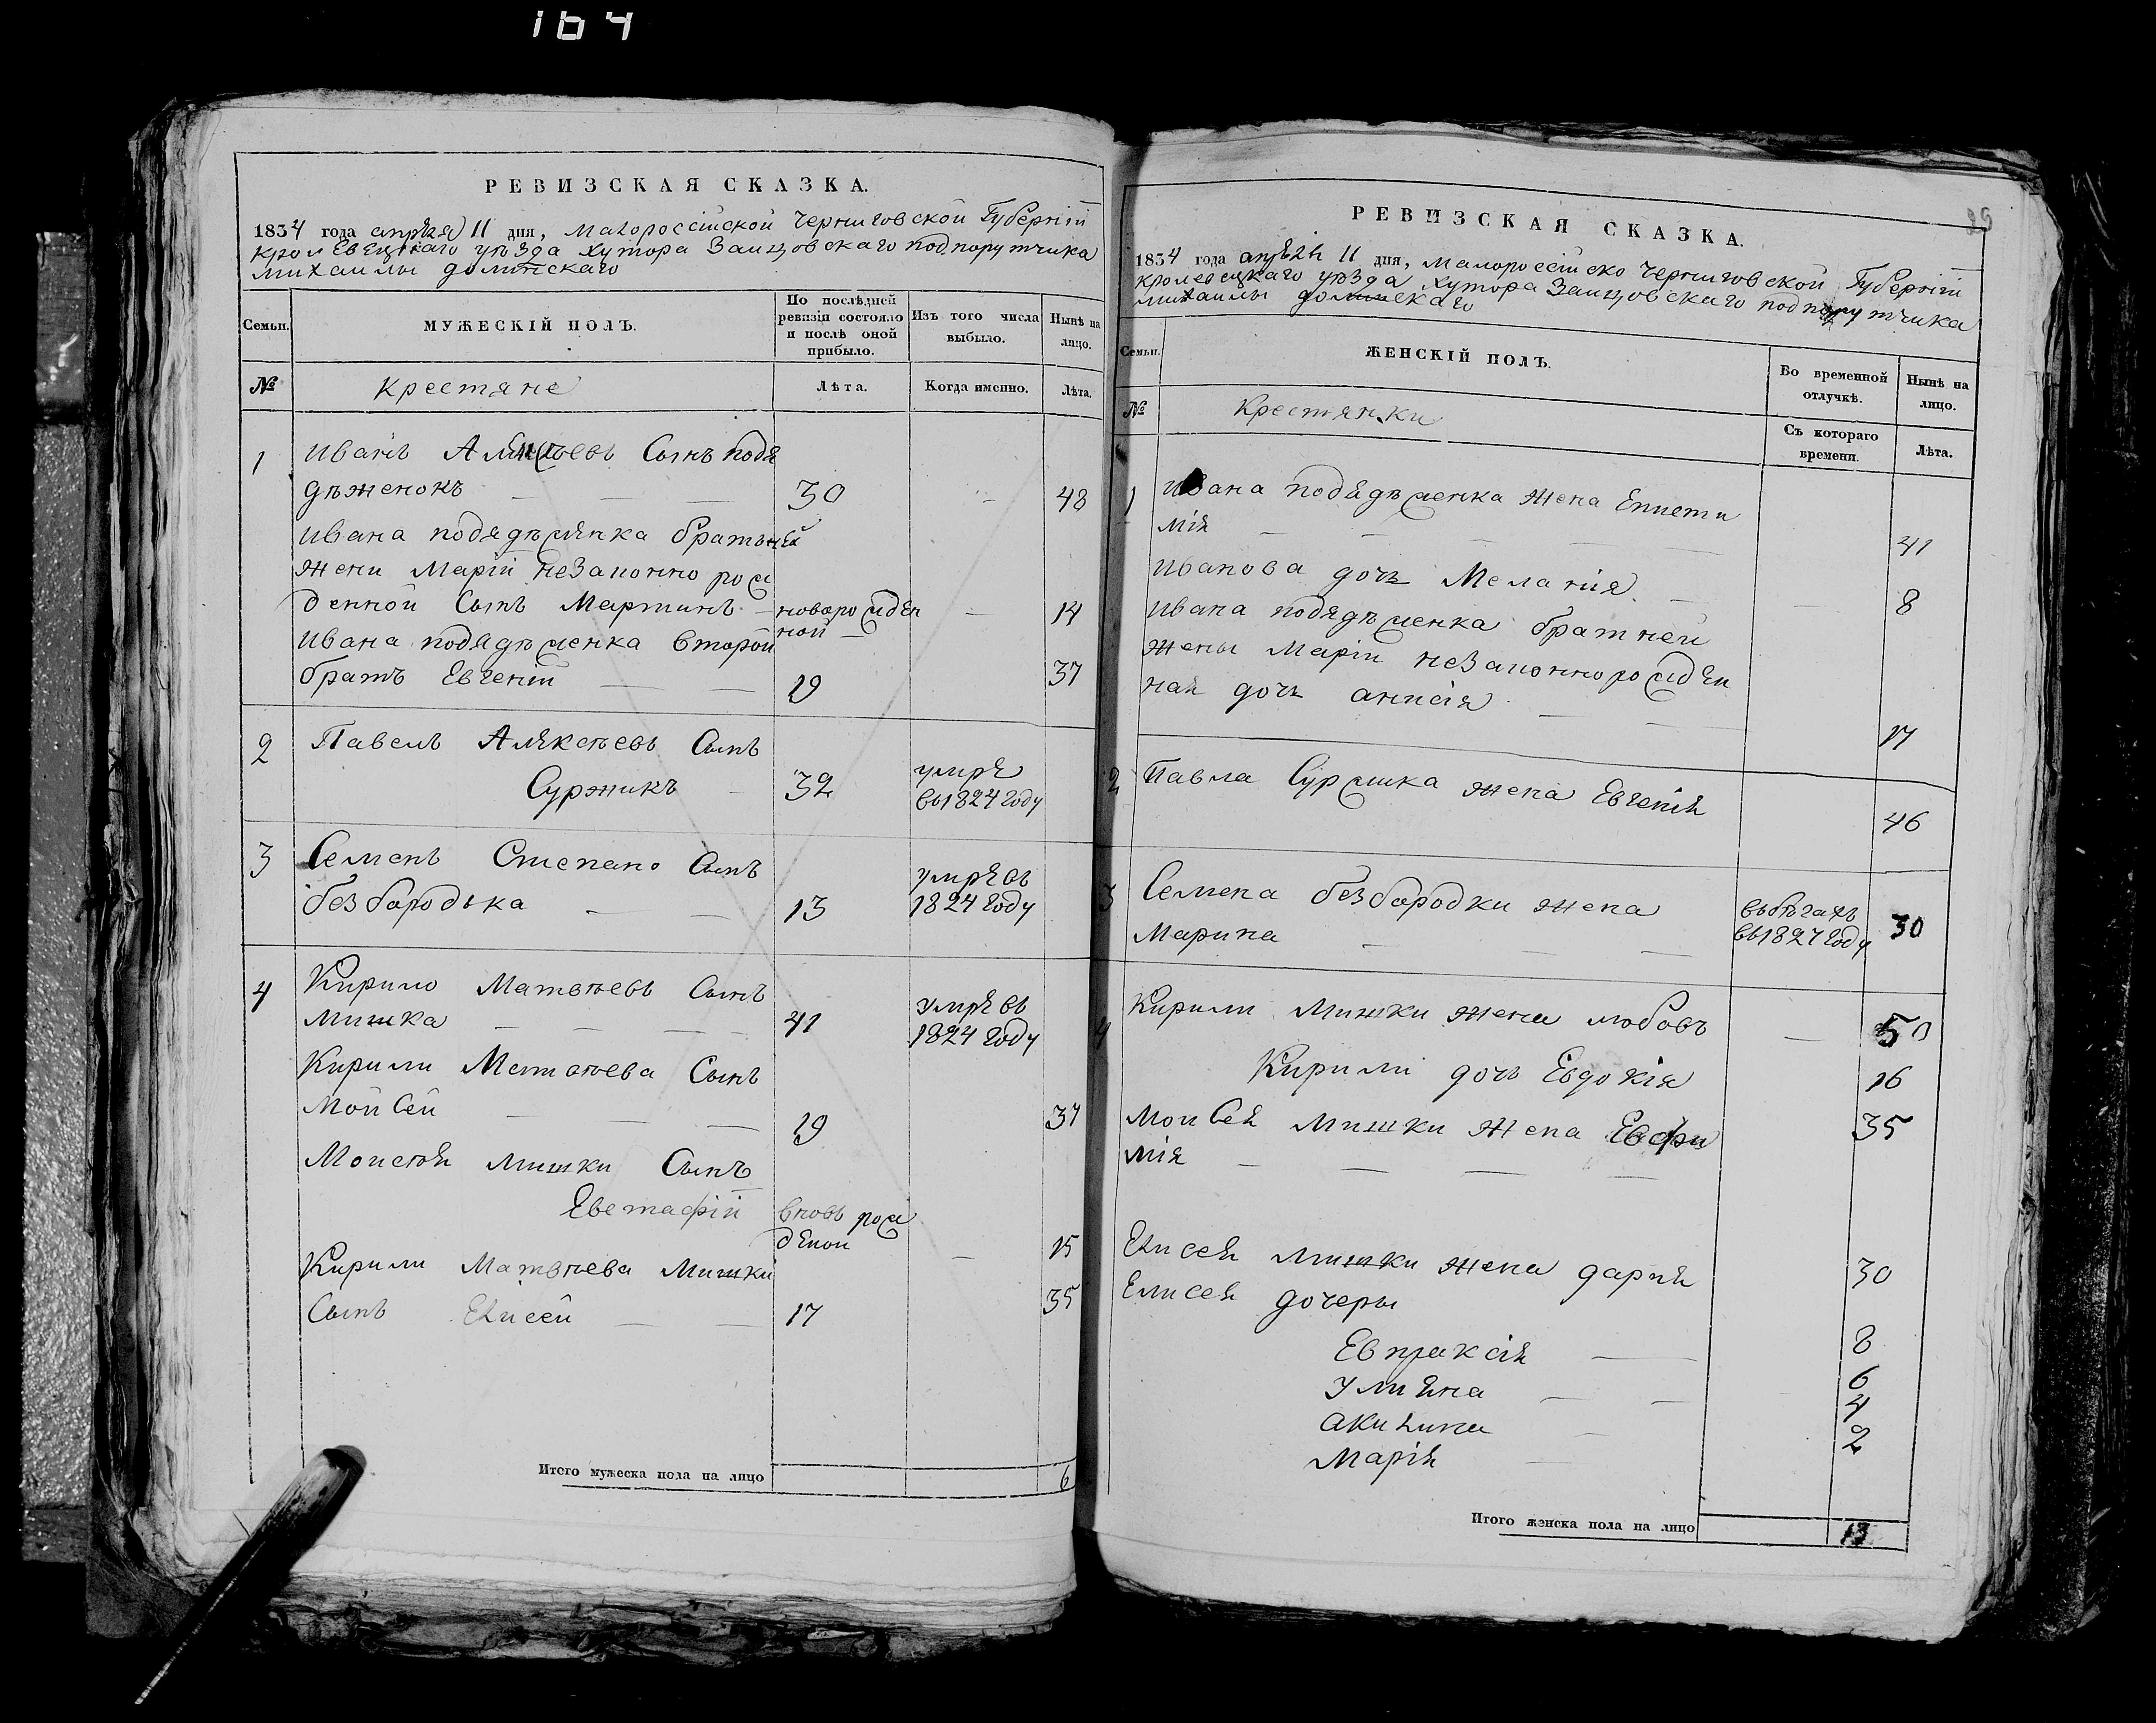 164
РЕВИЗСКАЯ СКАЗКА.
1834 года апреля 11 дня, Малороссiйской Черниговской Губернiи
Кролевецкаго уѣзда Хутора Заицовскаго подпорутчика
Михаилы долинскаго
Семьи.
МУЖЕСКІЙ ПОЛЪ.
По послѣдней ревизіи состояло и послѣ оной прибыло.
Изъ того числа выбыло.
Нынѣ на лицо.
№
крестяне
Лѣта.
Когда именно.
Лѣта.
1
иванъ Алексѣевъ Сынъ подя
дѣженокъ — — — 30 — 48
ивана подядѣженка братьней
жени Марiй незаконно рож
денной Сынъ Мартинъ — новорожден — 14
ной —
ивана подядѣженка второй
братъ Евгенiй — — 19 37
2
Павелъ Алексѣевъ Сынъ
Суржикъ — 32 умре
въ 1824 Году
3
Семенъ Степано Сынъ
безбородька — — 13 умре въ
1824 Году
4
Кирило Матвѣевъ Сынъ
мишка — — — 41 умре въ
1824 Году
Кирили Матвѣева Сынъ
мойсей — — — 19 37
Моисѣя мишки Сынъ
Евстафiй вновь рож
деной — 15
Кирили Матвѣева Мишки
Сынъ Елисей — — 17 35
Итого мужеска пола на лицо 6
29
РЕВИЗСКАЯ СКАЗКА.
1834 года апрѣля 11 дня, малороссiйско Черниговской Губернiи
кролевецкаго уѣзда Хутора Заицовскаго подпорутчика
михаилы долинскаго
Семьи.
ЖЕНСКІЙ ПОЛЪ.
Во временной отлучкѣ.
Нынѣ на лицо.
№
Крестянки
Съ котораго времени.
Лѣта.
1
Ивана подядѣженка жена Еписти
мiя — — — — — 41
иванова дочь Меланiя — — 8
ивана подядѣженка братней
жены Марiи незаконнорожден
ная дочь анисiя — — 17
2
Павла Суржика жена Евгенiя 46
3
Семена безбородки жена
Марина — — — въ бѣгахъ
въ 1827 Году 30
4
Кирили мишки жена любовь — 50
Кирилi дочь Евдокiя 16
Моисея мишки жена Евфи 35
мiя — — — —
Елисея мишки жена дария 30
Елисея дочеры
Евпраксiя — 8
улияна — — 6
акилина — 4
Марiя — 2
Итого женска пола на лицо 13